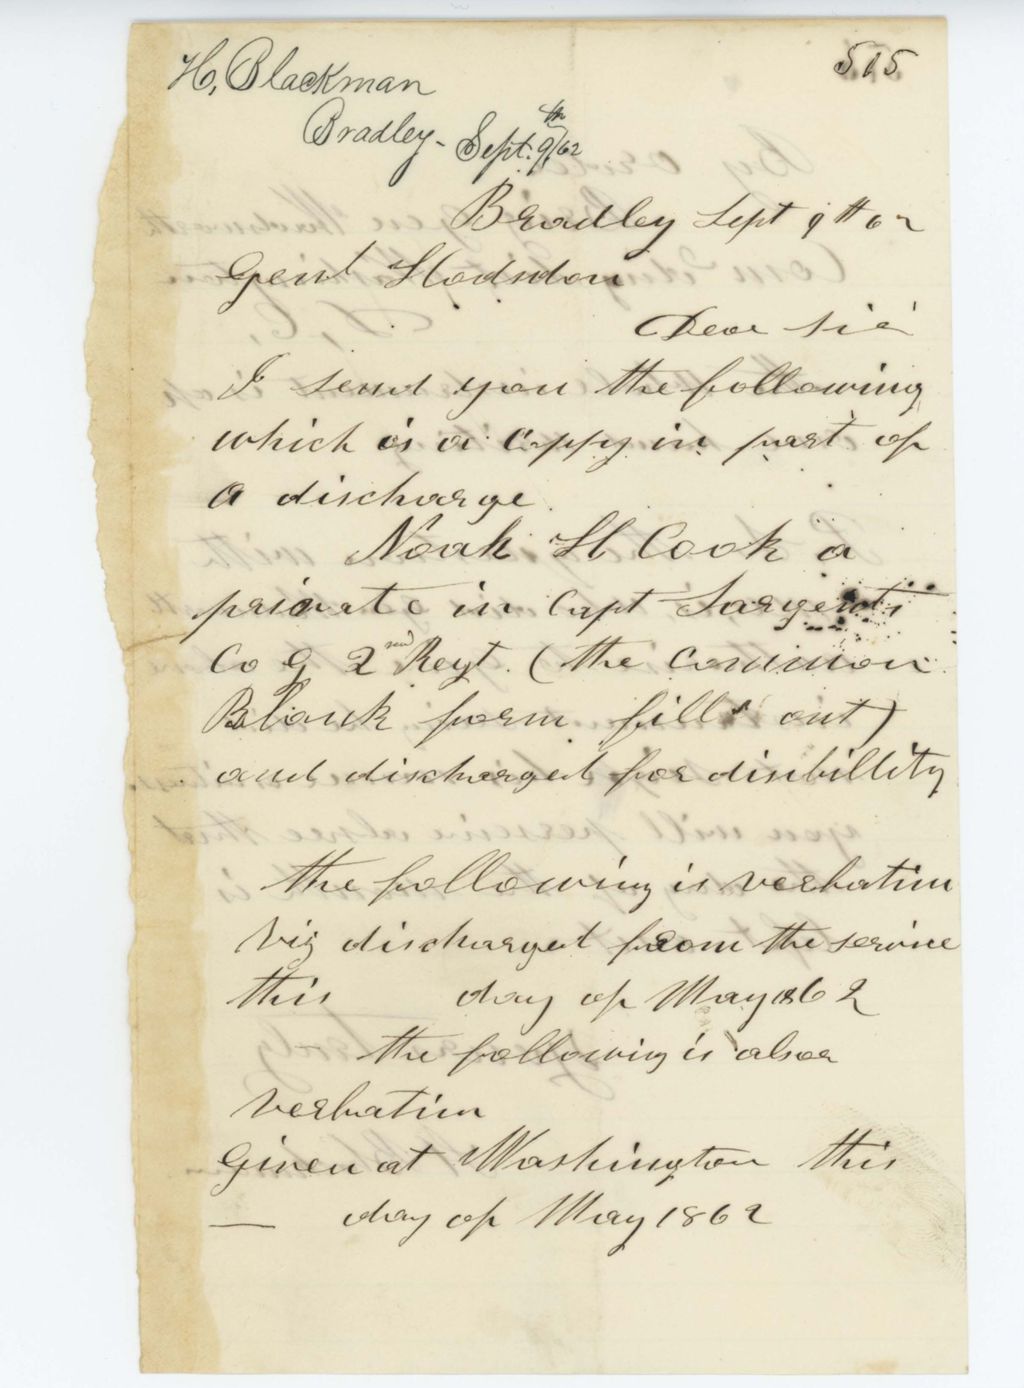 H. Blackman
515
Bradley - Sept. 9th/62
Bradley Sept 9th 62
Genl Hodsdon
Dear Sir
I send you the following
which is a Coppy in part of
a discharge.
Noah H Cook a
private in Capt Sargents
Co G 2nd Regt. (the common
Blank form fills out)
and discharged for disibillity
the following is verbatim
viz discharged from the service
this day of May 1862
the following is also
verbatim
Given at Washington this
— day of May 1862